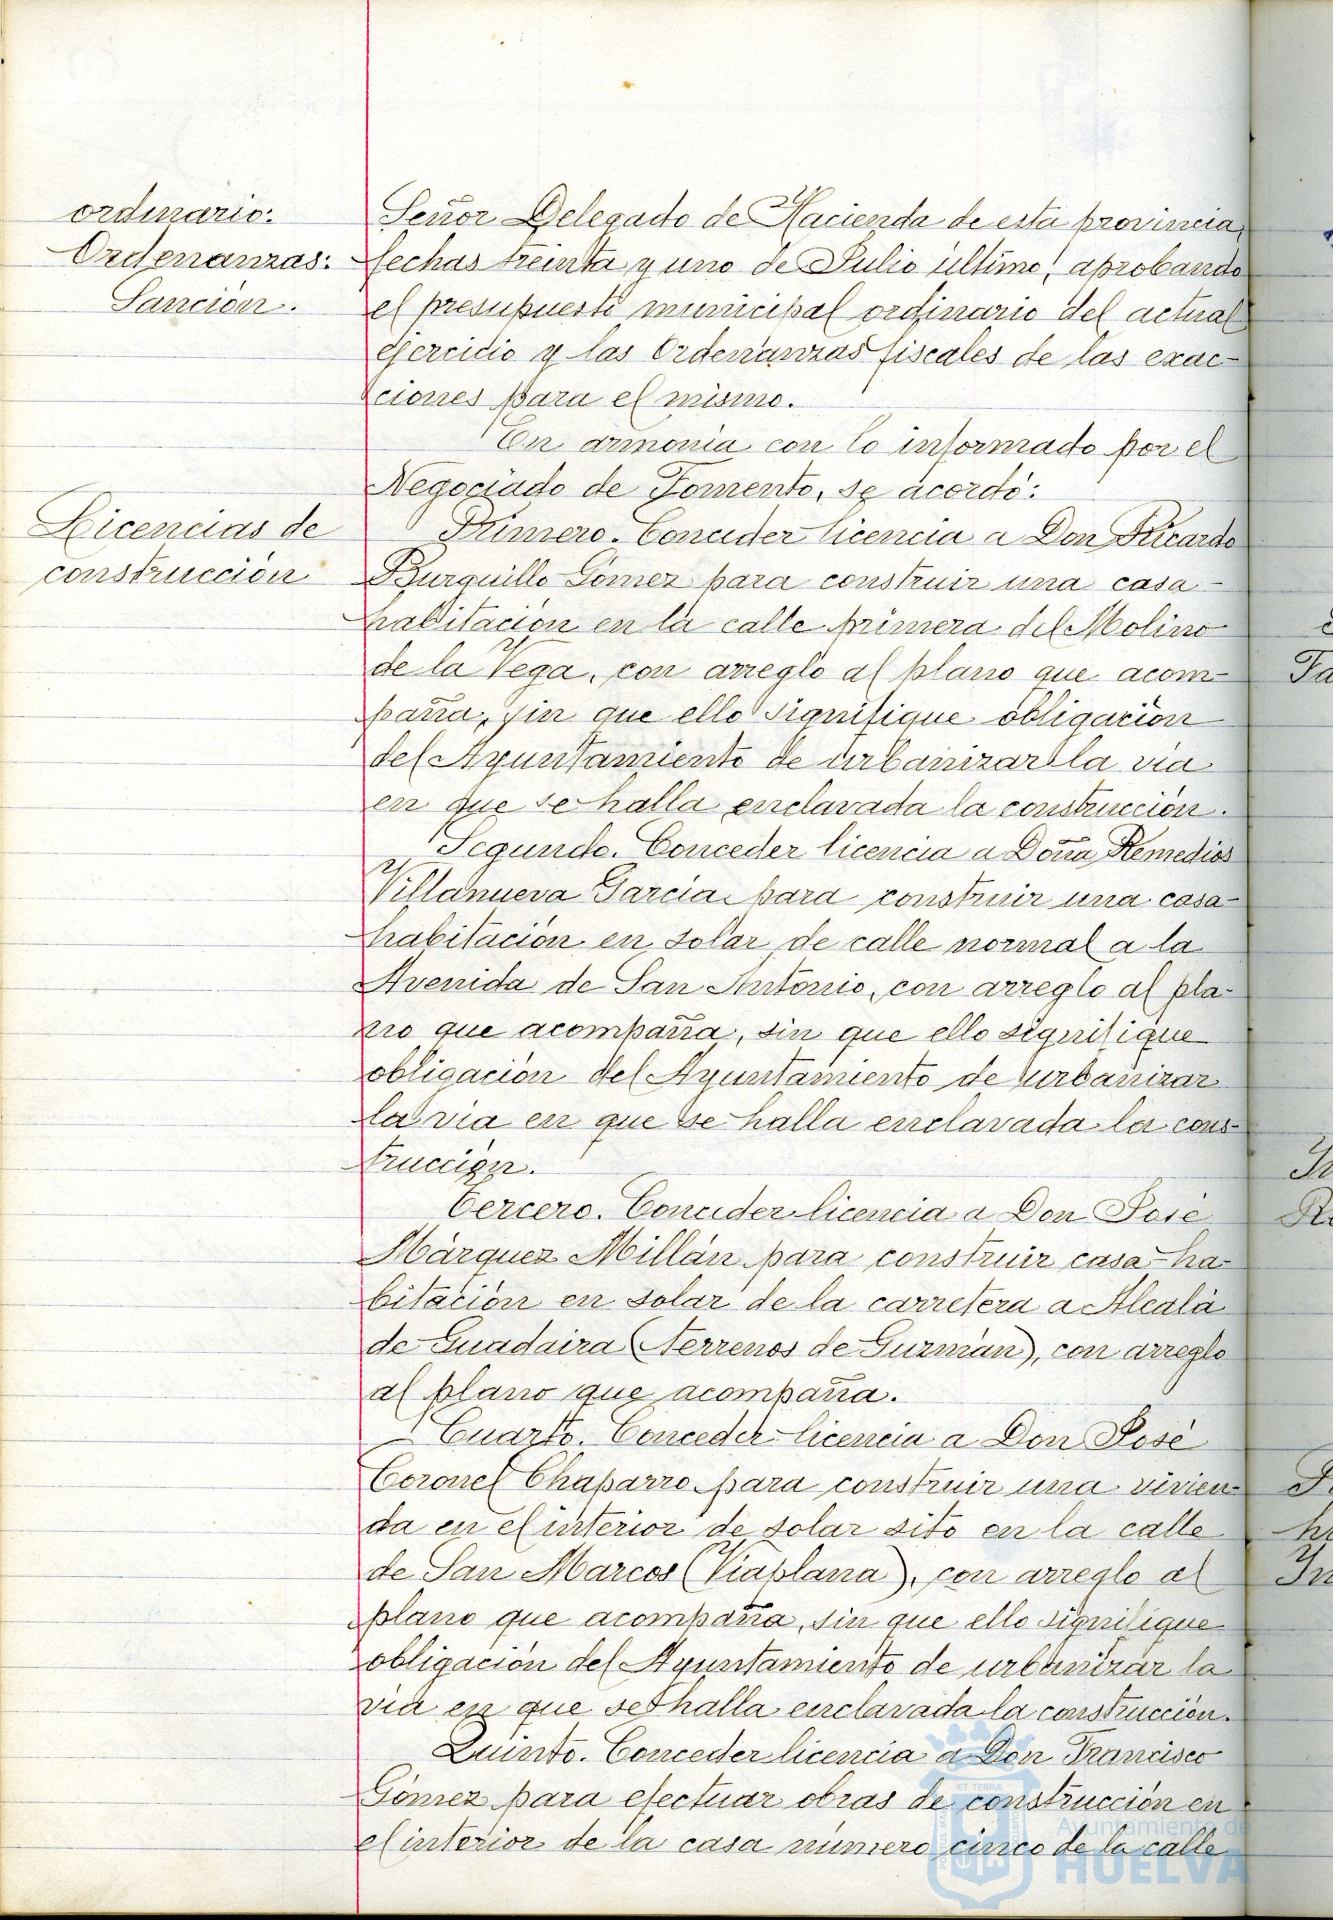 ordinario:
Ordenanzas:
Sanción.
Señor Delegado de Hacienda de esta provincia,
fechas treinta y uno de Julio último, aprobando
el presupuesto municipal ordinario del actual
ejercicio y las Ordenanzas fiscales de las exac-
ciones para el mismo.
En armonía con lo informado por el
Negociado de Fomento, se acordó:
Licencias de
construcción
Primero. Conceder licencia a Don Ricardo
Burguillo Gómez para construir una casa-
habitación en la calle primera del Molino
de la Vega, con arreglo al plano que acom-
paña, sin que ello signifique obligación
del Ayuntamiento de urbanizar la vía
en que se halla enclavada la construcción.
Segundo. Conceder licencia a Doña Remedios
Villanueva García para construir una casa-
habitación en solar de calle normal a la
Avenida de San Antonio, con arreglo al pla-
no que acompaña, sin que ello signifique
obligación del Ayuntamiento de urbanizar
la vía en que se halla enclavada la cons-
trucción.
Tercero. Conceder licencia a Don José
Márquez Millán para construir casa-ha-
bitación en solar de la carretera a Alcalá
de Guadaira (terrenos de Guzmán), con arreglo
al plano que acompaña.
Cuarto. Conceder licencia a Don José
Coronel Chaparro para construir una vivien-
da en el interior de solar sito en la calle
de San Marcos (Viaplana), con arreglo al
plano que acompaña, sin que ello signifique
obligación del Ayuntamiento de urbanizar la
vía en que se halla enclavada la construcción.
Quinto. Conceder licencia a Don Francisco
Gómez para efectuar obras de construcción en
el interior de la casa número cinco de la calle
Ayuntamiento de
HUELVA